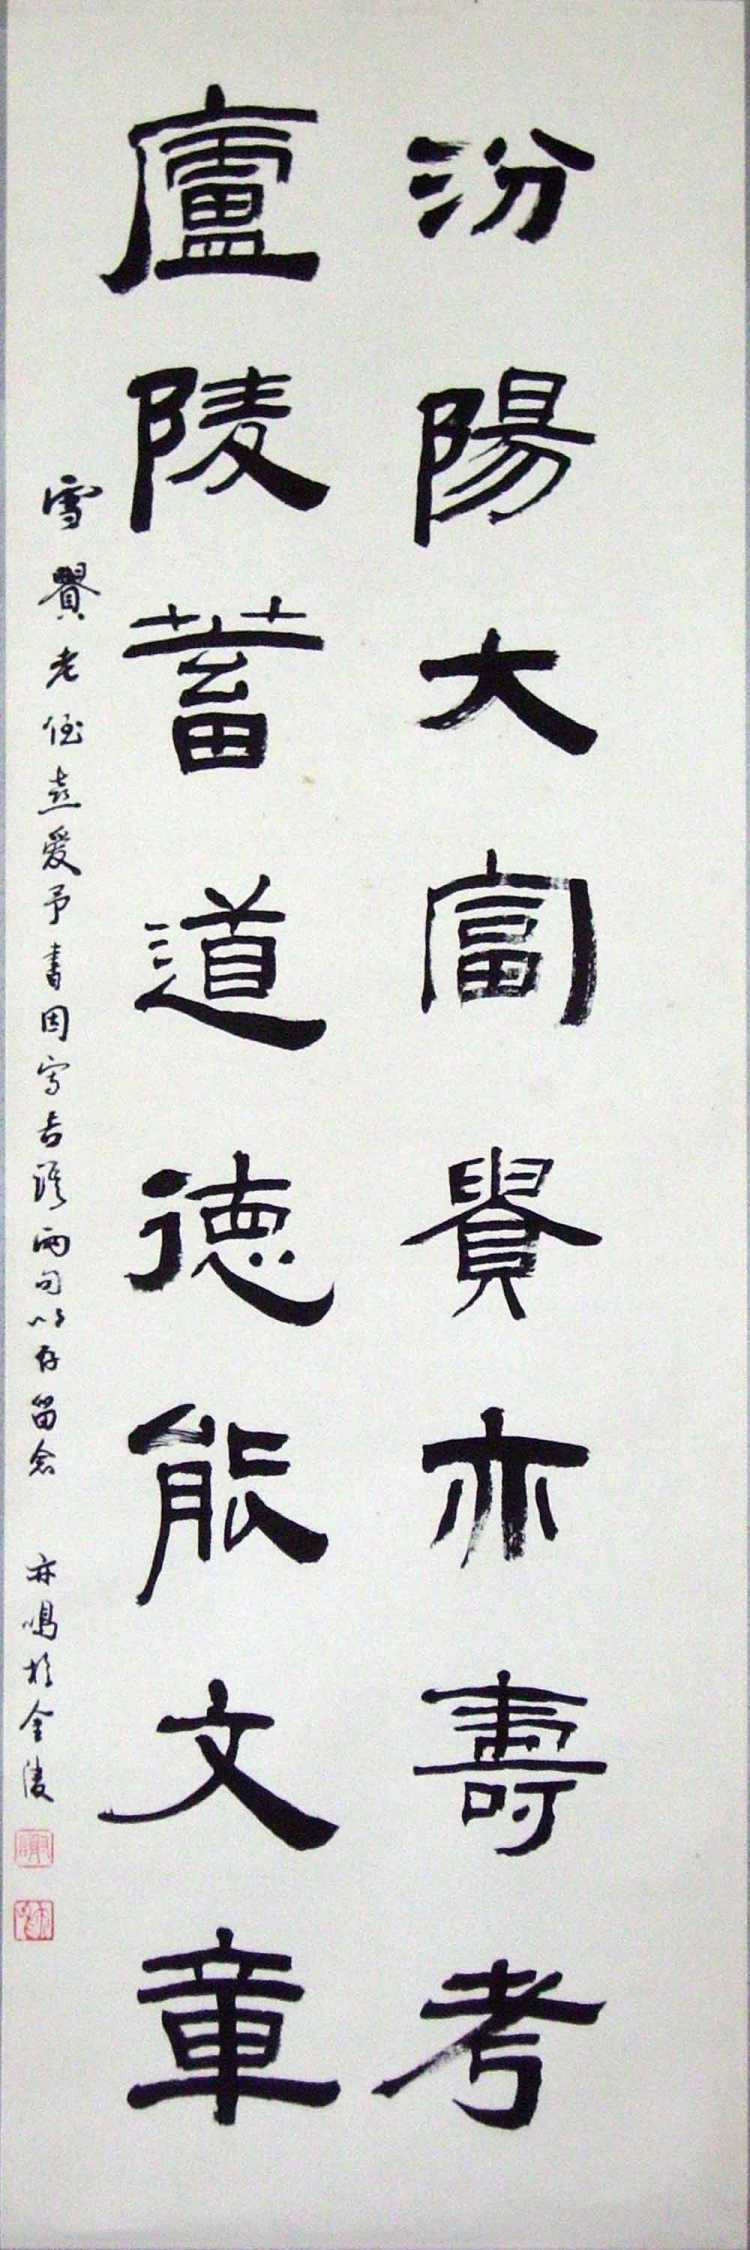 汾陽大富貴亦壽考
廬陵蓄道德能文章
雪賢老侄喜愛予書因寄古語兩句以存留念
亦鳴於金陵